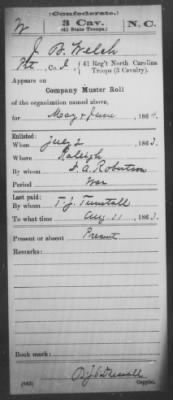 (Confederate.)
W 3 Cav. N.C.
(41 State Troops.)
J. B. Welch
Pvt, Co. I, 41 Reg't North Carolina
Troops (3 Cavalry).
Appears on
Company Muster Roll
of the organization named above,
for May & June, 1864.
Enlisted:
When July 2, 1863.
Where Raleigh
By whom
Period War
Last paid:
By whom T. J. Tunstall
To what time Aug 31, 1863.
Present or absent Present
Remarks:
Book mark:
(642) Copyist.